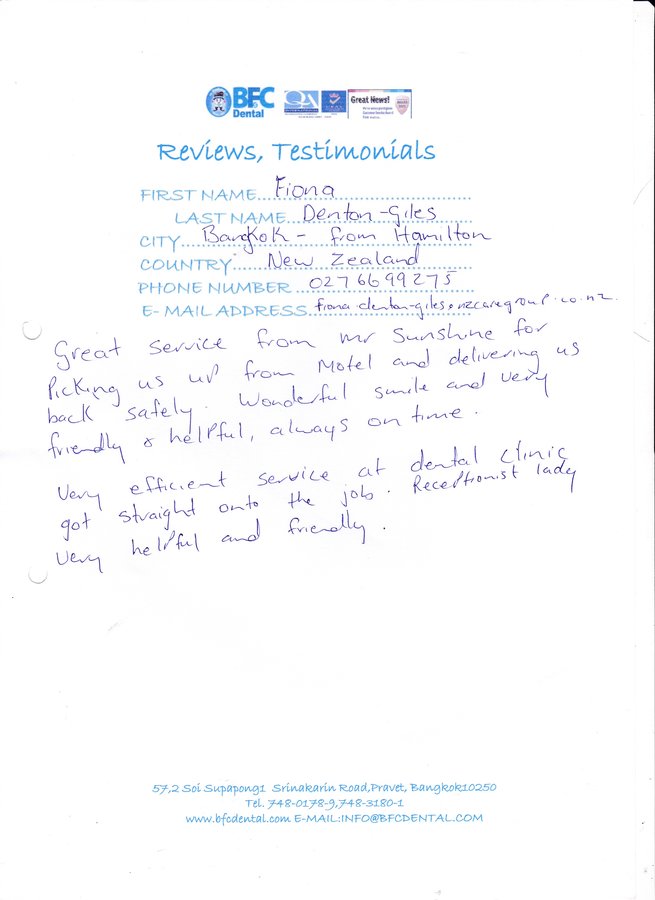 BFC
Dental
QA
Great News!
Reviews, Testimonials
FIRST NAME...Fiona
LAST NAME...Denton-Giles
CITY...Bangkok - from Hamilton
COUNTRY...New Zealand
PHONE NUMBER...0276699275
E-MAIL ADDRESS.fiona.denton-giles@nzcaregroup.co.nz.
Great service from mr Sunshine for
Picking us up from Motel and delivering us
back safely. Wonderful smile and very
friendly & helpful, always on time.
Very efficient service at dental clinic
got straight onto the job. Receptionist lady
very helpful and friendly.
57,2 Soi Supapong1 Srinakarin Road,Pravet, Bangkok10250
Tel. 748-0178-9,748-3180-1
www.bfcdental.com E-MAIL:INFO@BFCDENTAL.COM